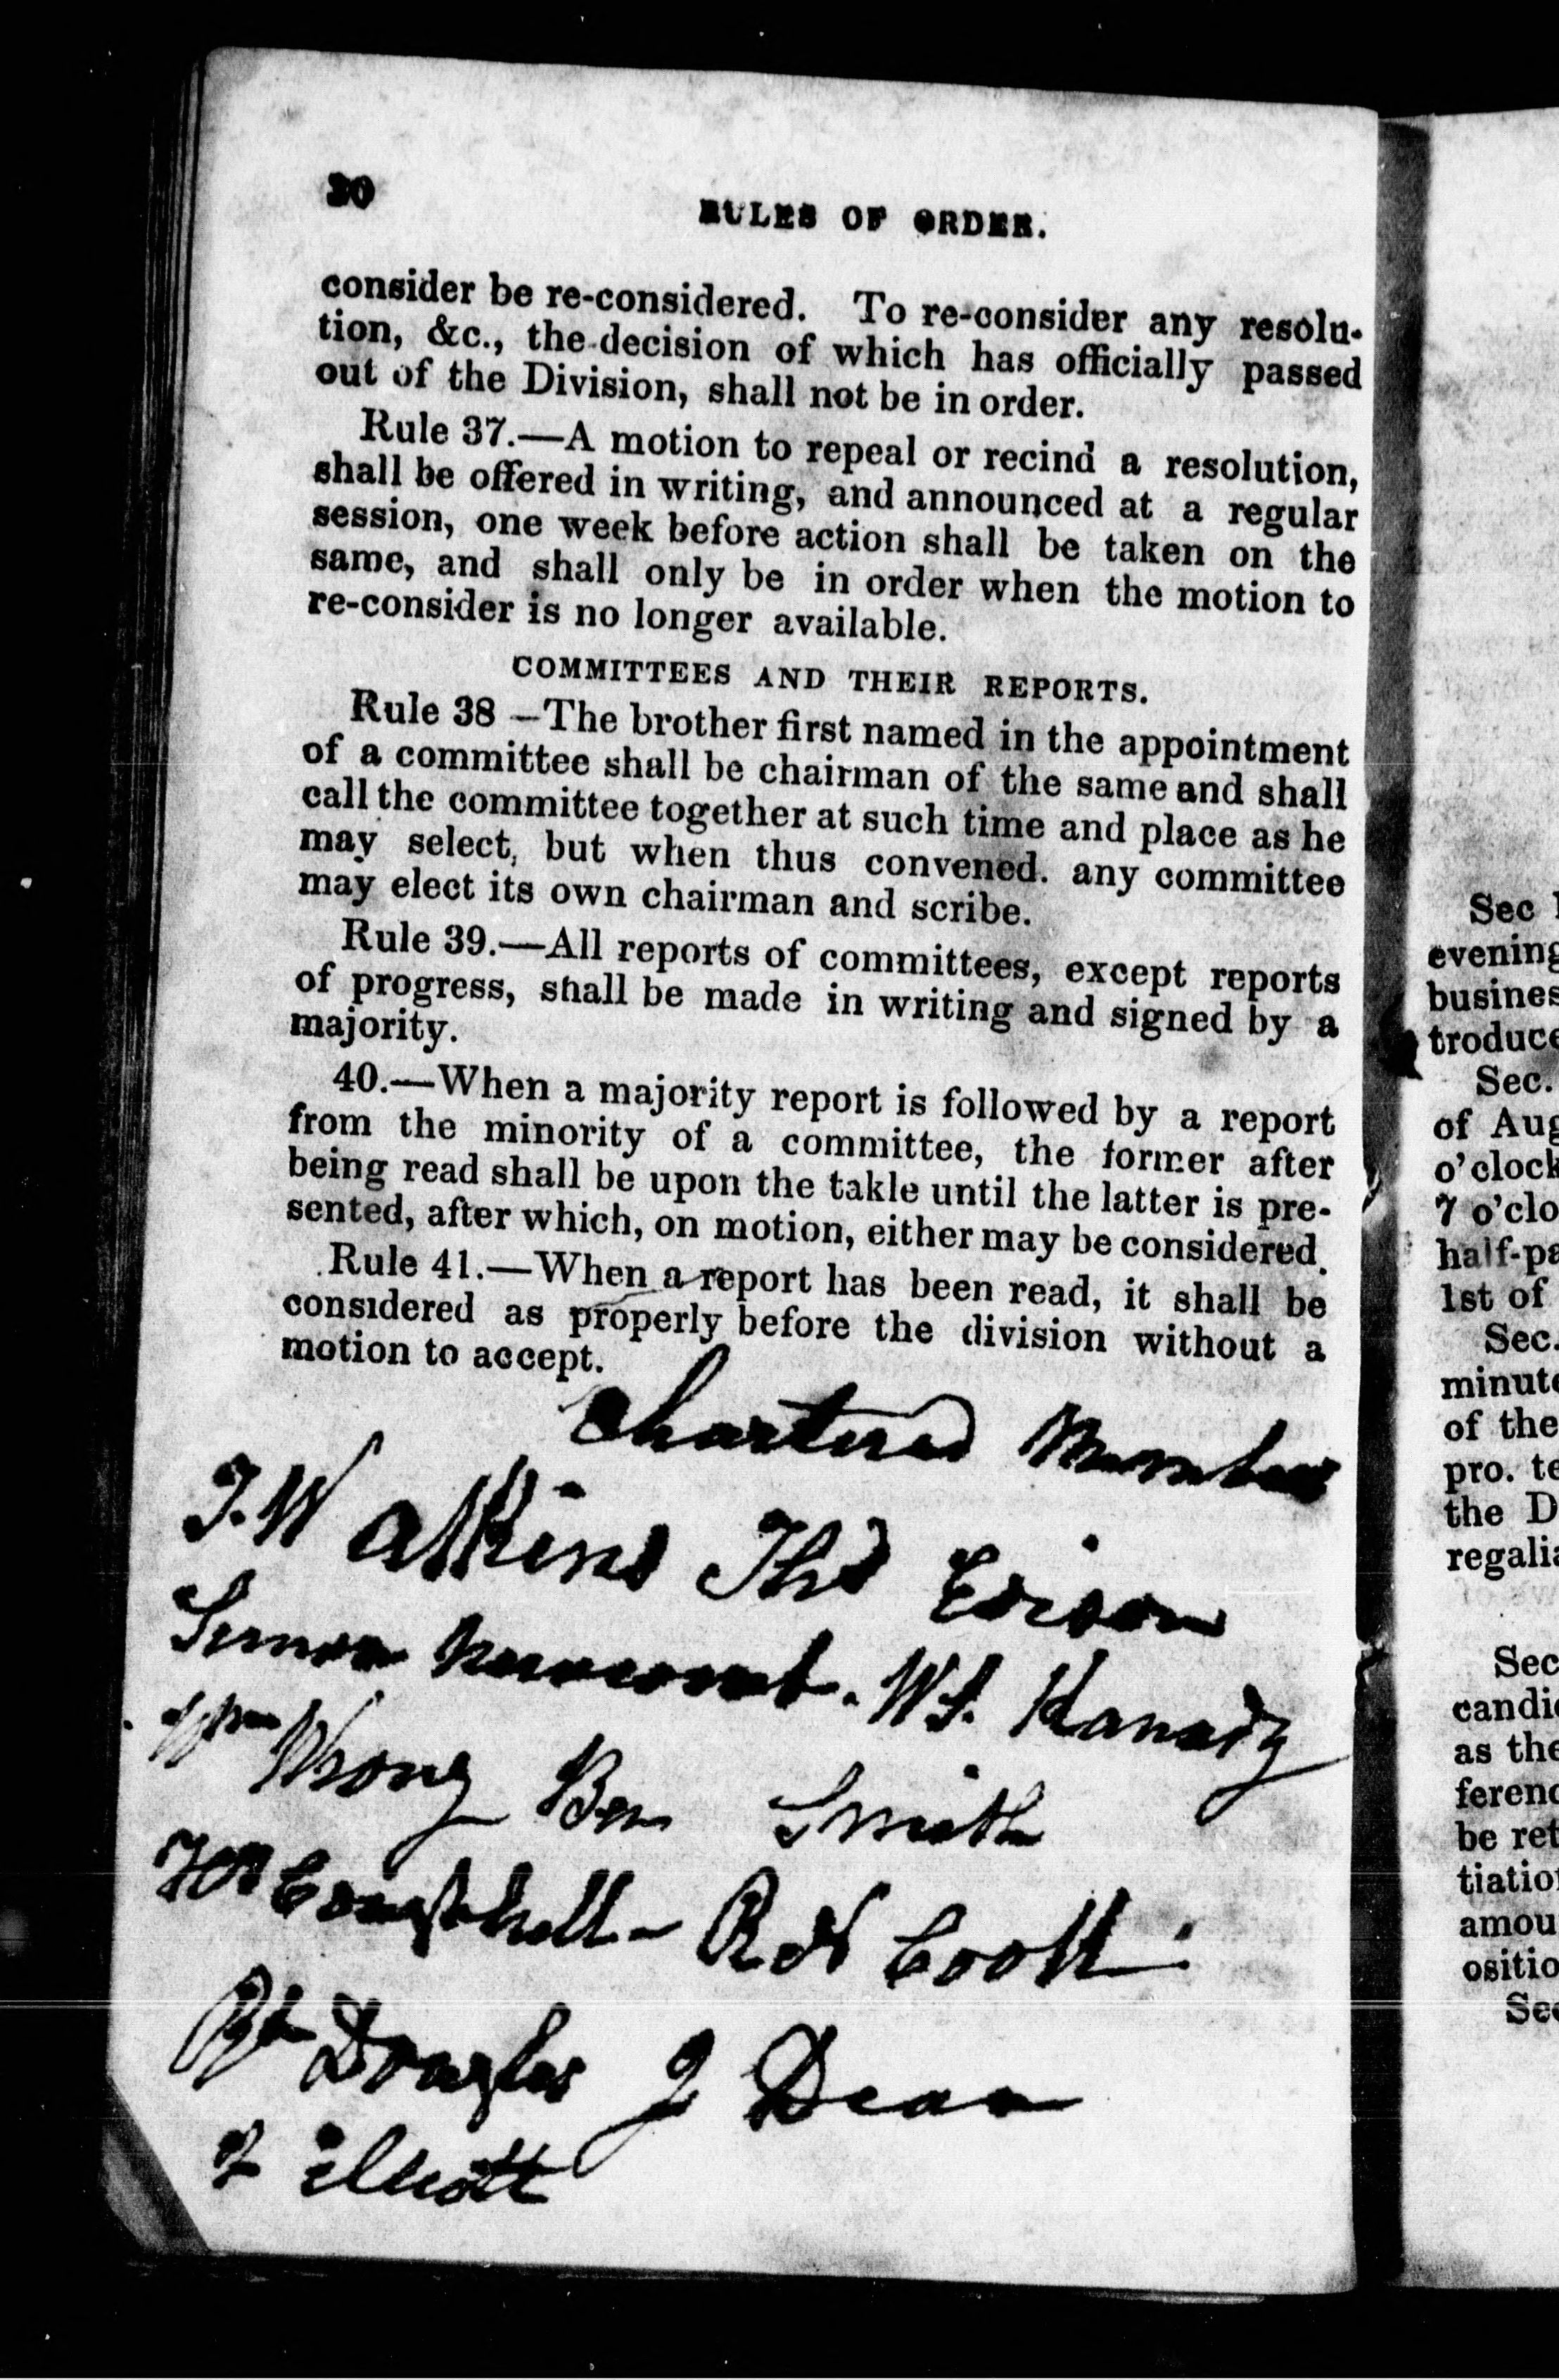 30
RULES OF ORDER.
consider be re-considered. To re-consider any resolu-
tion, &c., the decision of which has officially passed
out of the Division, shall not be in order.
Rule 37.—A motion to repeal or recind a resolution,
shall be offered in writing, and announced at a regular
session, one week before action shall be taken on the
same, and shall only be in order when the motion to
re-consider is no longer available.
COMMITTEES AND THEIR REPORTS.
Rule 38 —The brother first named in the appointment
of a committee shall be chairman of the same and shall
call the committee together at such time and place as he
may select, but when thus convened. any committee
may elect its own chairman and scribe.
Rule 39.—All reports of committees, except reports
of progress, shall be made in writing and signed by a
majority.
40.—When a majority report is followed by a report
from the minority of a committee, the former after
being read shall be upon the takle until the latter is pre-
sented, after which, on motion, either may be considered.
Rule 41.—When a report has been read, it shall be
considered as properly before the division without a
motion to accept.
Chartered Members
J. W atkins Thos Edison
Simon Newcomb. W. Kanady
Wm Wrong Ben Smith
Coughell - R N Cook
Douglas J Dean
Elliott
Sec
evening
busines
troduce
Sec.
of Aug
o'clock
7 o'clo
half-pa
1st of
Sec.
minute
of the
pro. te
the D
regalia
Sec
candi
as the
ferenc
be ret
tiatio
amou
ositio
Sec